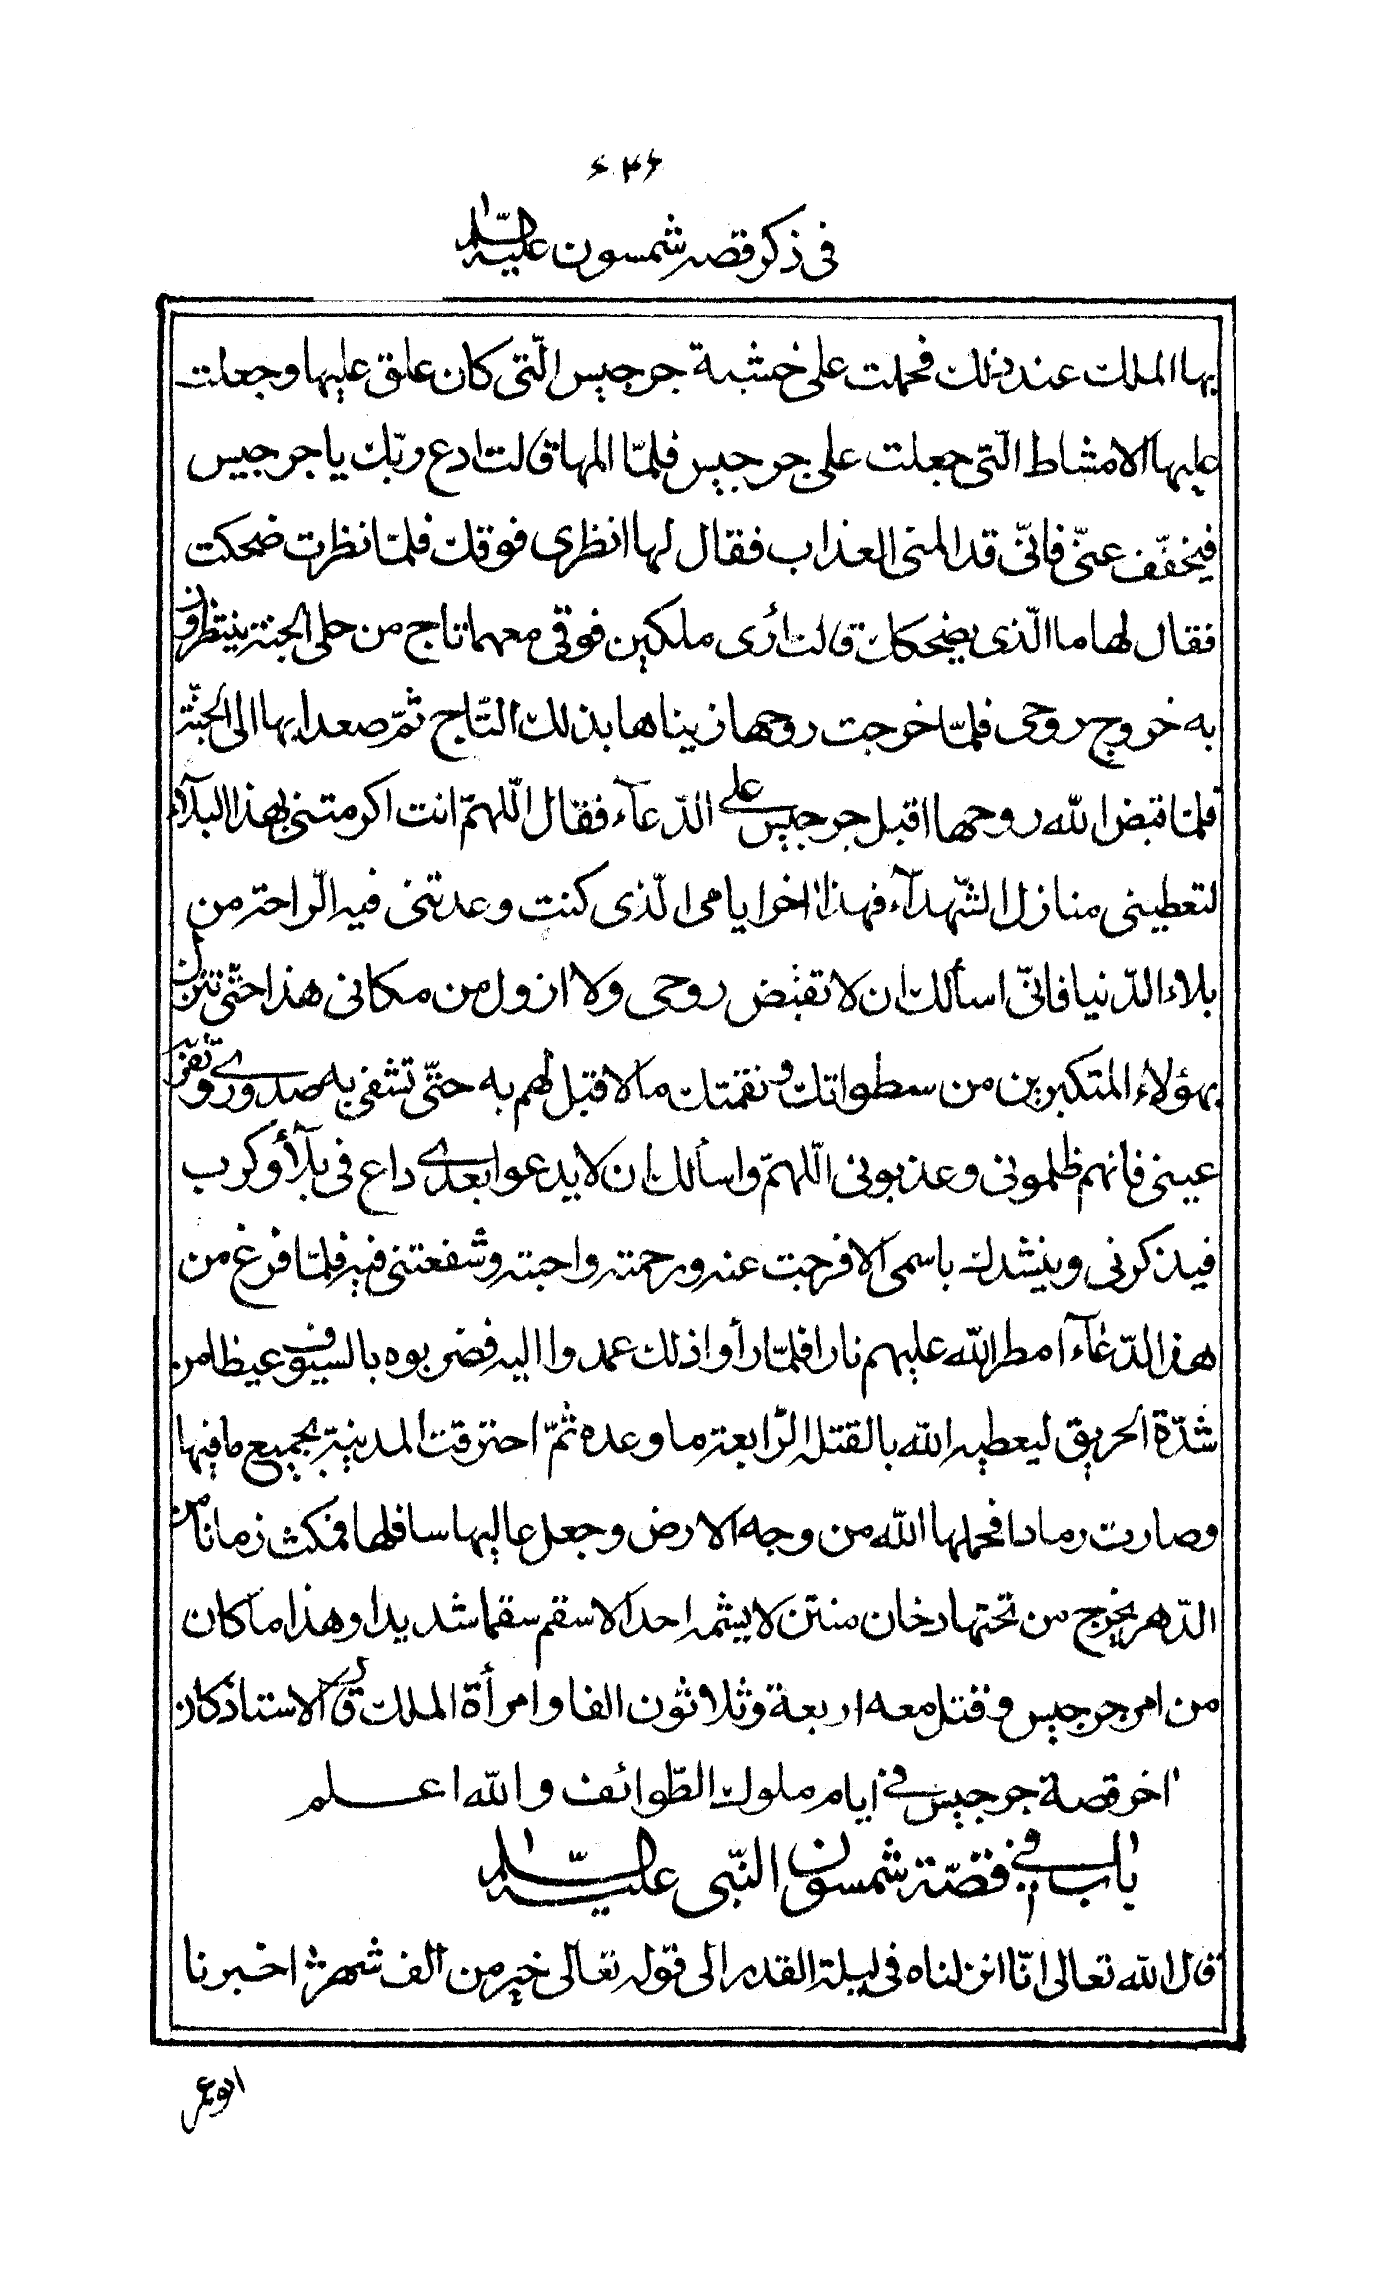 ۶۳۶
فی ذكر قصه شمسون عليه السّلام
بها الملك عند ذلك فحملت على خشبة جرجيس الّتى كان علق عليها وجعلت
عليها الامشاط الّتى جعلت على جرجيس فلمّا المها قالت ادع ربّك يا جرجيس
فيخفّف عنّى فانّى قد المنى العذاب فقال لها انظرى فوقك فلمّا نظرت ضحكت
فقال لها ما الّذى يضحكك قالت أرى ملكين فوقى معهما تاج من حلى الجنة ينتظرون
به خروج روحى فلمّا خرجت روحها زيناها بذلك التّاج ثمّ صعدا بها الى الجنّة
فلمّا قبض الله روحها اقبل جرجيس على الدّعآء فقال اللّهمّ انت اكرمتنى بهذا البلآء
لتعطينى منازل الشّهدآء فهذا اخر ايامى الّذى كنت وعدتنى فيه الرّاحة من
بلاء الدّنيا فانّى اسألك ان لا تقبض روحى ولا ازول من مكانى هذا حتّى تنزل
بهؤلاء المتكبرين من سطواتك ونقمتك ما لا قبل لهم به حتّى تشفى به صدورى وتقرّ
عينى فانهم ظلمونى وعذبونى اللّهمّ واسألك ان لا يدعوا بعدى داع فى بلآ أو كرب
فيذكرنى وينشدك باسمى الا فرجت عنه ورحمته واحبته وشفعتنى فيه فلمّا فرغ من
هذا الدّعآء امطر الله عليهم نارا فلمّا رأوا ذلك عمدوا اليه فضربوه بالسيوف عيظا من
شدّة الحريق ليعطيه الله بالقتله الرّابعة ما وعده ثمّ احترقت المدينة بجميع ما فيها
وصارت رمادا فحملها الله من وجه الارض وجعل عاليها سافلها فمكث زمانا من
الدّهر يخرج من تحتها دخان منتن لا يشمه احد الا سقم سقما شديدا وهذا ما كان
من امر جرجيس وقتل معه اربعة وثلاثون الفا وامرأة الملك قال الاستاذ كان
اخر قصة جرجيس فى ايام ملوك الطّوائف والله اعلم
باب فى قصّة شمسون النّبى عليه السّلام
قال الله تعالى انّا انزلناه فى ليلة القدر الى قوله تعالى خير من الف شهر اخبرنا
ابو عمر